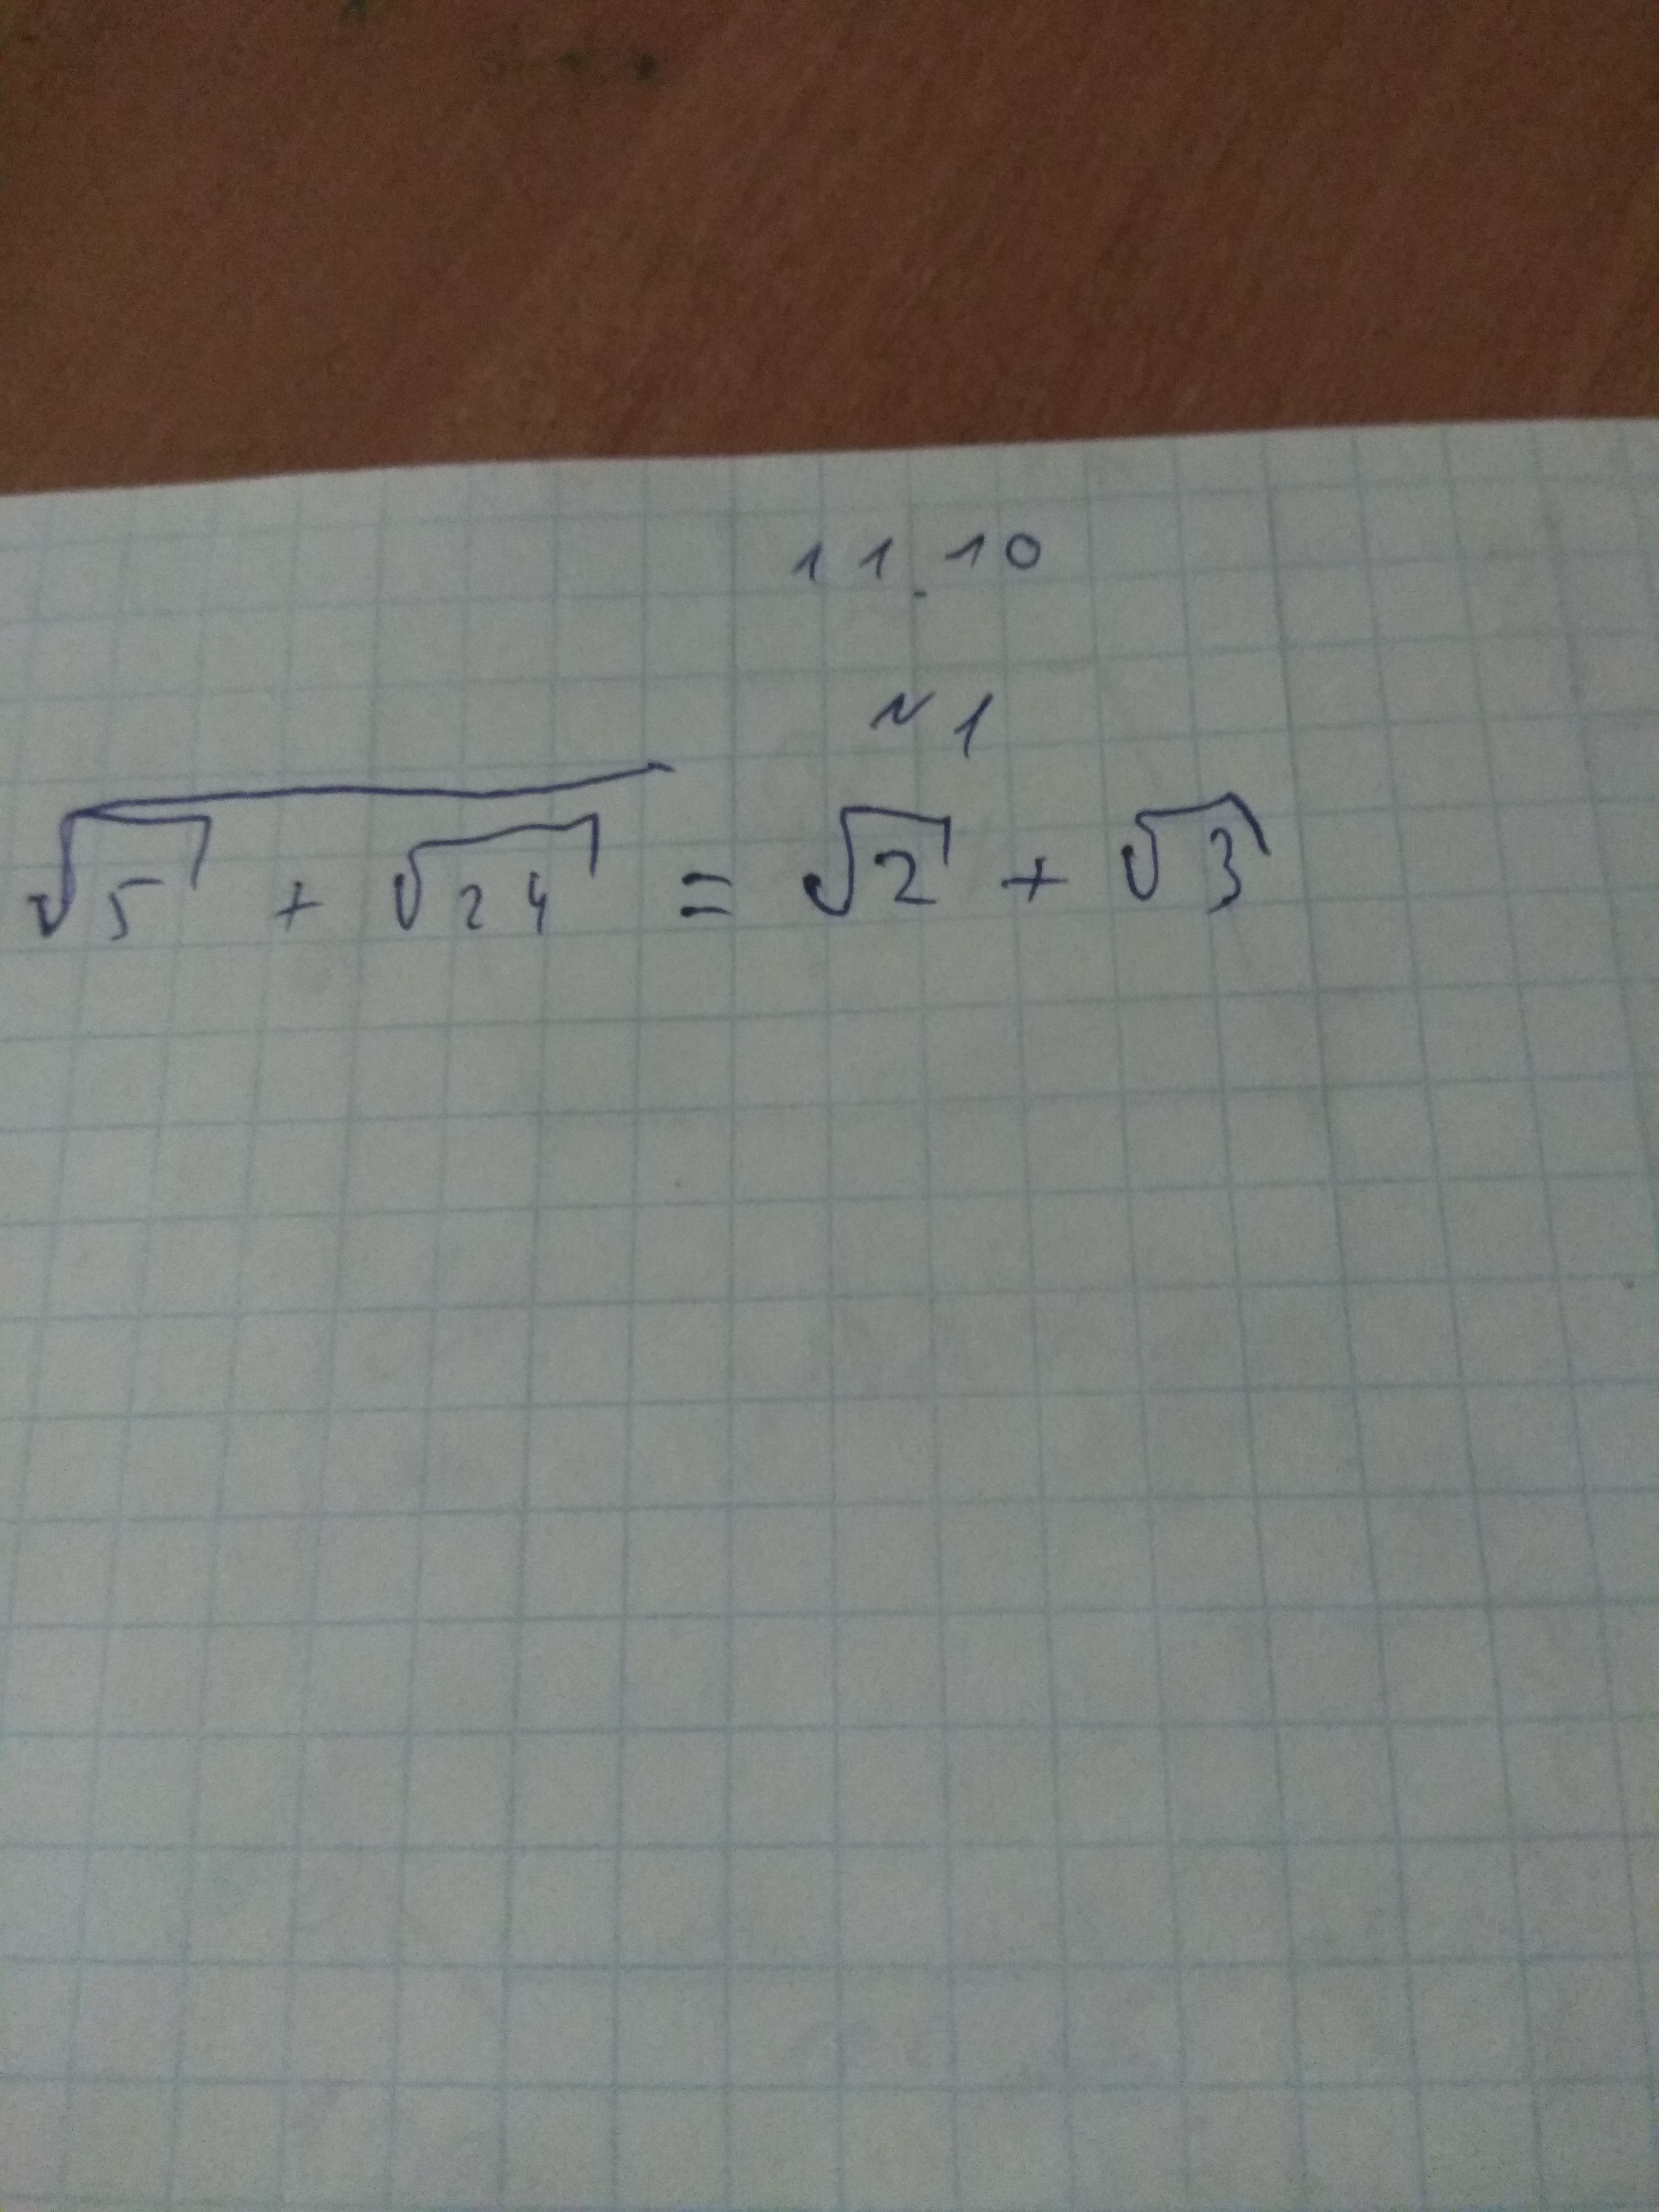 11.10
N1
√5 + √24 = √2 + √3